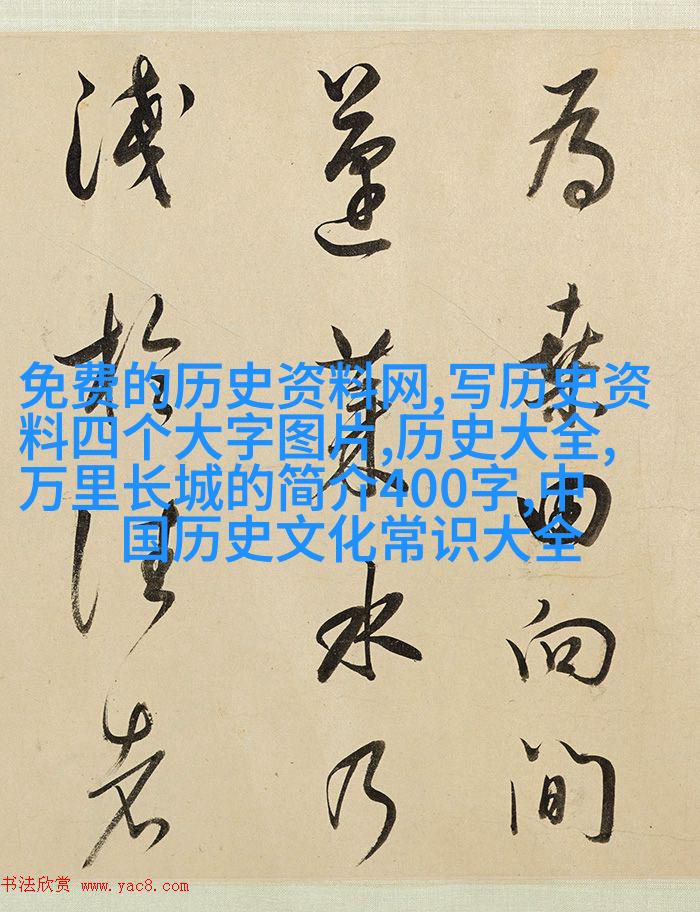 為桑田向間
蓬萊水乃
淺於往者
免费的历史资料网,写历史资
料四个大字图片,历史大全,
万里长城的简介400字,中
国历史文化常识大全
书法欣赏 www.yac8.com